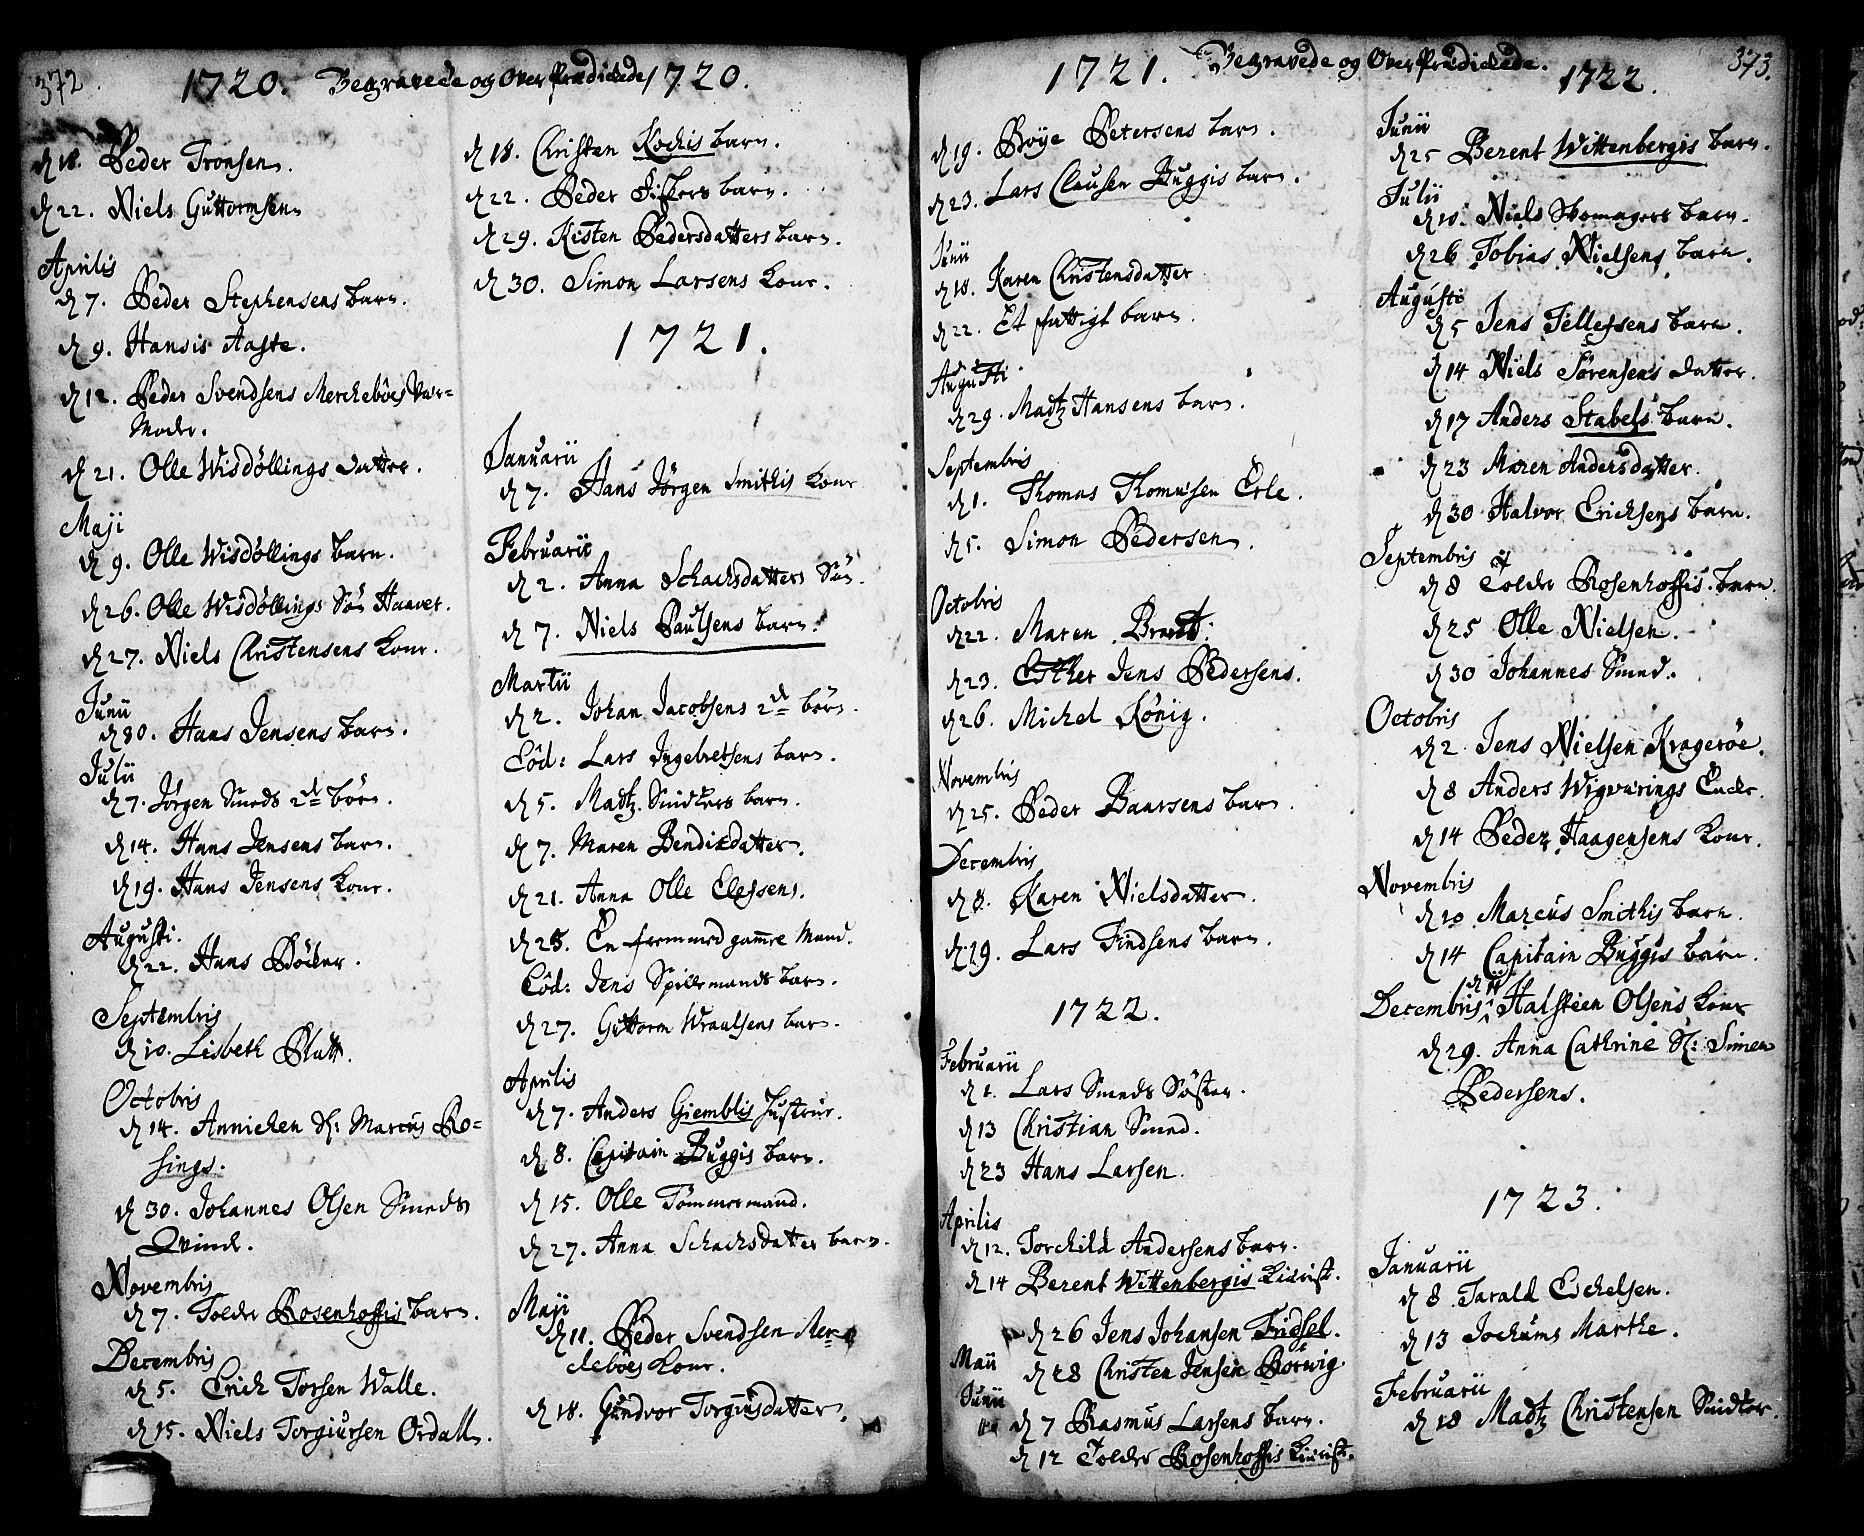 372. 1720. Begravede og Over Prædickede 1720.
d 18. Peder Tronsen.
d 22. Niels Guttormsen
Aprilis
d 7. Peder Stephensens barn.
d 9. Hansis Aaste.
d 12. Peder Svendsens Merckeböes Vær-
Moder.
d 21. Olle Wisdöllings datter.
Maji
d 9. Olle Wisdöllings barn.
d 26. Olle Wisdöllings Sön Haaver.
d 27. Niels Christensens Kone.
Junii
d 30. Hans Jensens barn.
Julii
d 7. Jörgen Smeds 2de börn.
d 14. Hans Jensens barn.
d 19. Hans Jensens Kone.
Augusti.
d 22. Hans Böcker.
Septembris
d 10. Lisbeth Platt.
Octobris
d 14. Annichen Sl: Marcus Ro-
sings.
d 30. Johannes Olsen Smeds
Qvinde.
Novembris
d 7. Tolder Rosenhoffis barn.
Decembris
d 5. Erich Torsen Walle.
d 15. Niels Torgiursen Ordall.
d 18. Christen Kochis barn.
d 22. Peder Fiskers barn.
d 29. Kisten Pedersdatters barn.
d 30. Simon Larsens Kone.
1721.
Januarii
d 7. Hans Jörgen Smithis Kone
Februarii
d 2. Anna Schacksdatters Sön.
d 7. Niels Paulsens barn.
Martii
d 2. Johan Jacobsens 2de börn.
Eôd: Lars Ingebretsens barn.
d 5. Madtz Snidkers barn.
d 7. Maren Bendixdatter.
d 21. Anna Olle Elessens.
d 25. En fremmed gamre Mand.
Eôd: Jens Spillemands barn.
d 27. Guttorm Wraalsens barn.
Aprilis
d 7. Anders Giemblis Hustrue.
d 8. Capitain Buggis barn.
d 15. Olle Tömmermand.
d 27. Anna Schachsdatters barn.
Maji
d 11. Peder Svendsen Mer-
cleböes Kone.
d 18. Gundvor Torgiusdatter.
1721. Begravede og Over Prædickede. 1722. 373.
d 19. Boÿe Petersens barn.
d 23. Lars Clausen Buggis barn.
Junii
d 18. Karen Christensdatter
d 22. Et fattigt barn.
Augusti
d 29. Madtz Hansens barn.
Septembris
d 1. Thomas Thomæsen Erle.
d 5. Simon Pedersen.
Octobris
d 22. Maren Brandt.
d 23. Esther Jens Pedersens.
d 26. Michel König.
Novembris
d 25. Peder Baarsens barn.
Decembris
d 8. Karen Nielsdatter.
d 19. Lars Findsens barn.
1722.
Februarii
d 1. Lars Smeds Söster.
d 13 Christian Smed.
d 23 Hans Larsen.
Aprilis
d 12. Torchild Andersens barn.
d 14 Berent Wittenbergis
d 26 Jens Johansen Fridsel.
Maii
d 28 Christen Jensen Botwig
Junii
d 7 Rasmus Larsens barn.
d 12 Tolder Rosenhoffis
Junii
d 25 Berent Wittenbergis barn.
Julii
d 10. Niels Skomagers barn.
d 26 Tobias Nielsens barn.
Augusti
d 5 Jens Tellefsens barn.
d 14 Niels Sörensens datter.
d 17 Anders Stabels barn.
d 23 Maren Andersdatter.
d 30 Halvor Erichsens barn.
Septembris
d 8 Tolder Rosenhoffis barn.
d 25 Olle Nielsen.
d 30 Johannes Smed.
Octobris
d 2 Jens Nielsen Krageröe.
d 8 Anders Wigværings Encke.
d 14 Peder Haagensens Kone.
Novembris
d 10 Marcus Smithis barn.
d 14 Capitain Buggis barn.
Decembris d 11 Halsteen Olsens Kone
d 29. Anna Cathrine Sl: Simen
Pedersens.
1723.
Januarii
d 8 Tarald Eschelsen.
d 13 Jochums Marthe.
Februarii
d 18 Madtz Christensen Snidker.